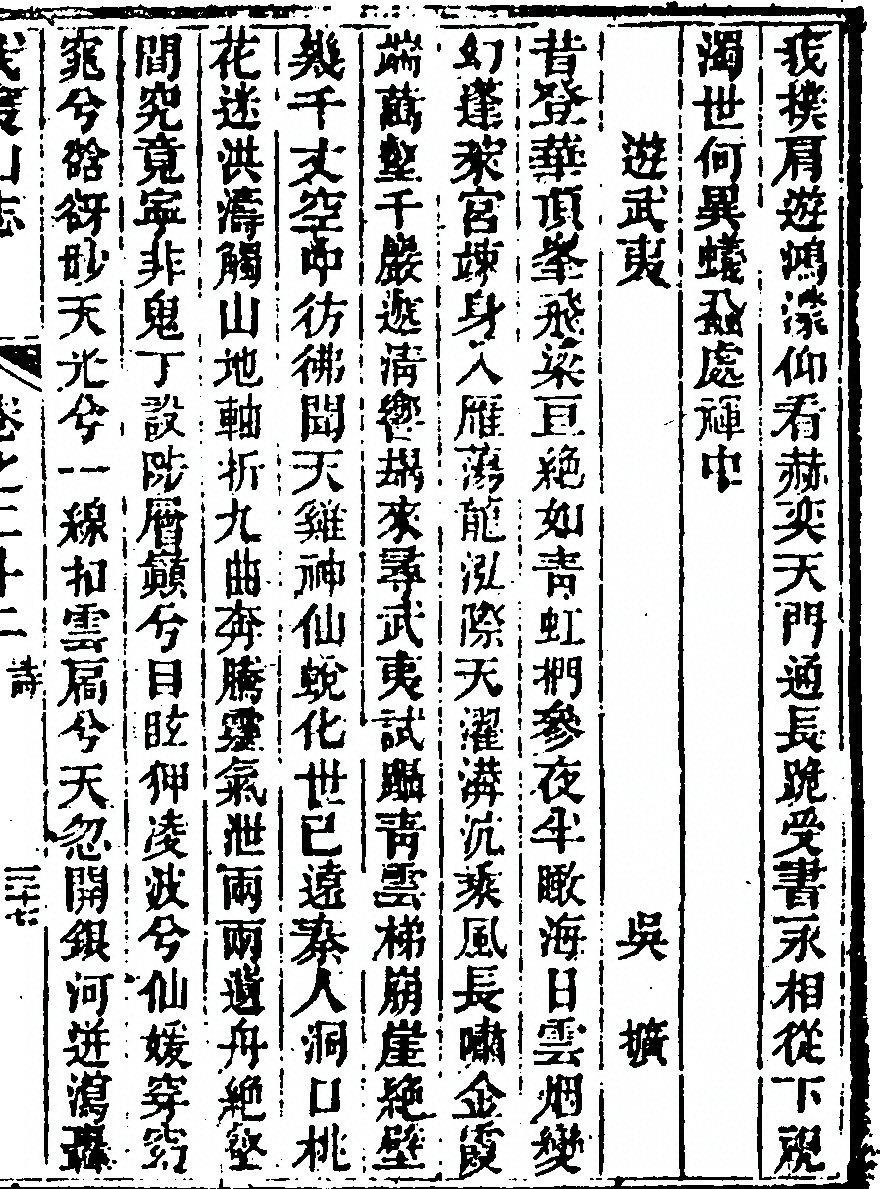 我撲肩遊鴻濛仰看赫奕天門通長跪受書永相從下視
濁世何異蟻蝨處褌中
遊武夷 吳擴
昔登華頂峯飛梁亘絶如青虹捫參夜半瞰海日雲烟變
幻蓬萊宮竦身入雁蕩龍泓際天濯溝沆乘風長嘯金霞
端萬壑千巖逝清響朅來尋武夷試躡青雲梯崩崖絶壁
幾千丈空中彷彿聞天雞神仙蛻化世已遠秦人洞口桃
花迷洪濤觸山地軸折九曲奔騰靈氣泄兩兩遊舟絶壑
間究竟寧非鬼丁設陟層巔兮目眩俯凌波兮仙媛穿窈
窕兮谽谺眇天光兮一線扣雲扃兮天忽開銀河迸瀉轟
武夷山志 卷之二十二 詩 三十七